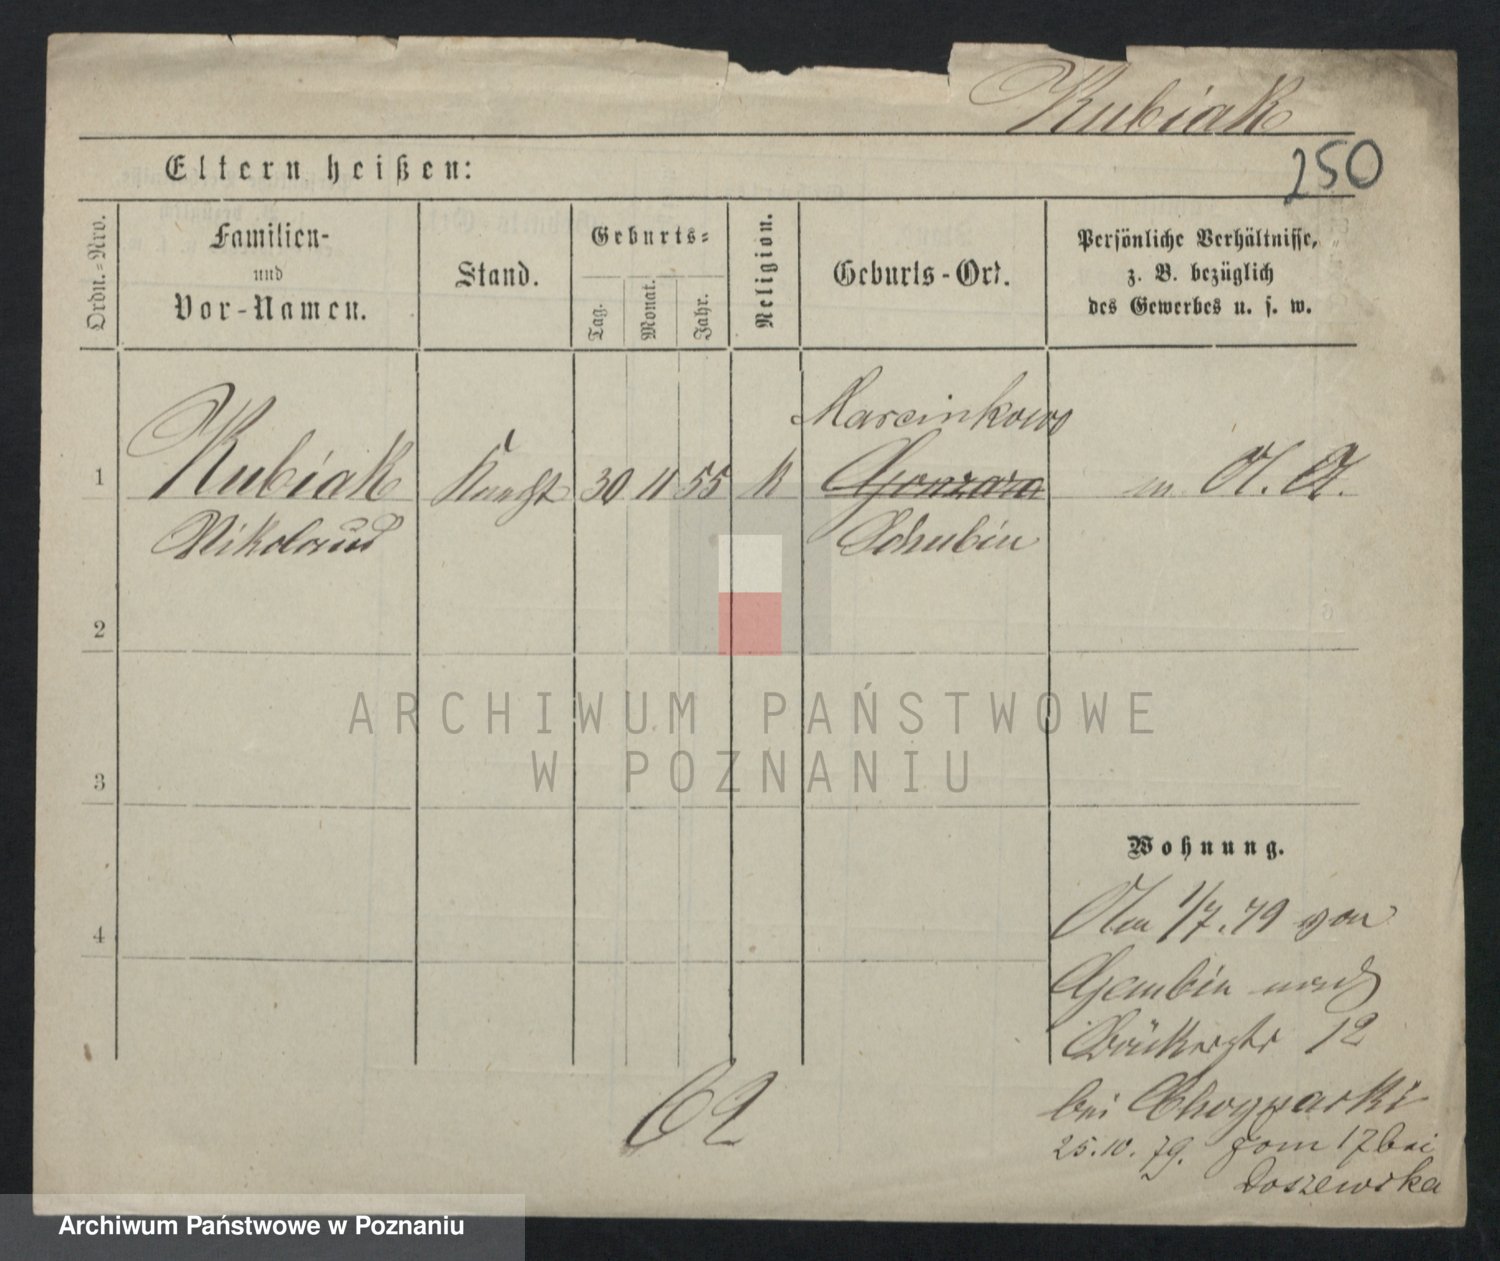 Kubiak
250
Eltern heißen:
Ordn.-Nro.
Familien-
und
Vor-Namen.
Stand.
Geburts-
Tag.
Monat.
Jahr.
Religion.
Geburts-Ort.
Persönliche Verhältnisse,
z. B. bezüglich
des Gewerbes u. s. w.
Marcinkowo
1 Kubiak Knecht 30 11 55 K m. A. A.
Nikolaus Schubin
2
3
4
Wohnung.
Am 1/7. 79 von
Gembin nach
12
bei
25. 10. 79. 17 bei
Doszewska
62
ARCHIWUM PAŃSTWOWE
W POZNANIU
Archiwum Państwowe w Poznaniu